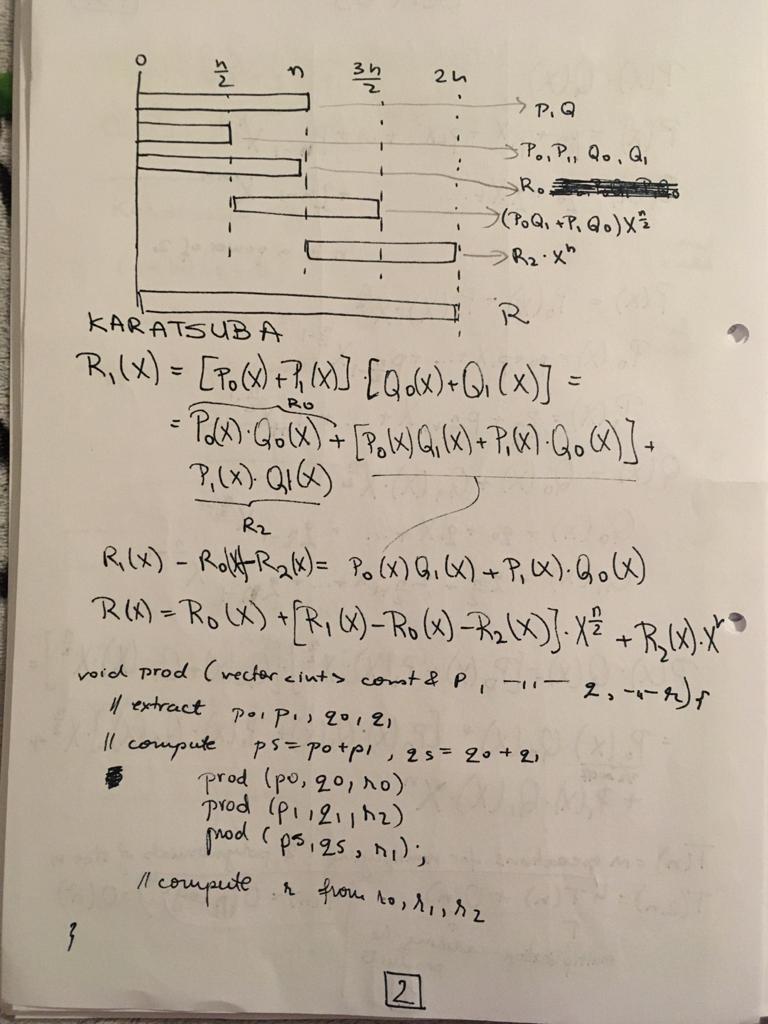 0 n/2 n 3n/2 2n
P, Q
P₀, P₁, Q₀, Q₁
R₀
(P₀Q₁ + P₁Q₀)X^(n/2)
R₂ · Xⁿ
R
KARATSUBA
R₁(X) = [P₀(X) + P₁(X)] · [Q₀(X) + Q₁(X)] =
R₀
= P₀(X) · Q₀(X) + [P₀(X)Q₁(X) + P₁(X) · Q₀(X)] +
P₁(X) · Q1(X)
R₂
R₁(X) - R₀(X) - R₂(X) = P₀(X)Q₁(X) + P₁(X) · Q₀(X)
R(X) = R₀(X) + [R₁(X) - R₀(X) - R₂(X)] · X^(n/2) + R₂(X) · Xⁿ
void prod (vector<int> const & p, -11- q, -11- r) {
// extract p0, p1, q0, q1
// compute ps = p0 + p1, qs = q0 + q1
prod (p0, q0, r0)
prod (p1, q1, r2)
prod (ps, qs, r1);
// compute r from r0, r1, r2
}
2